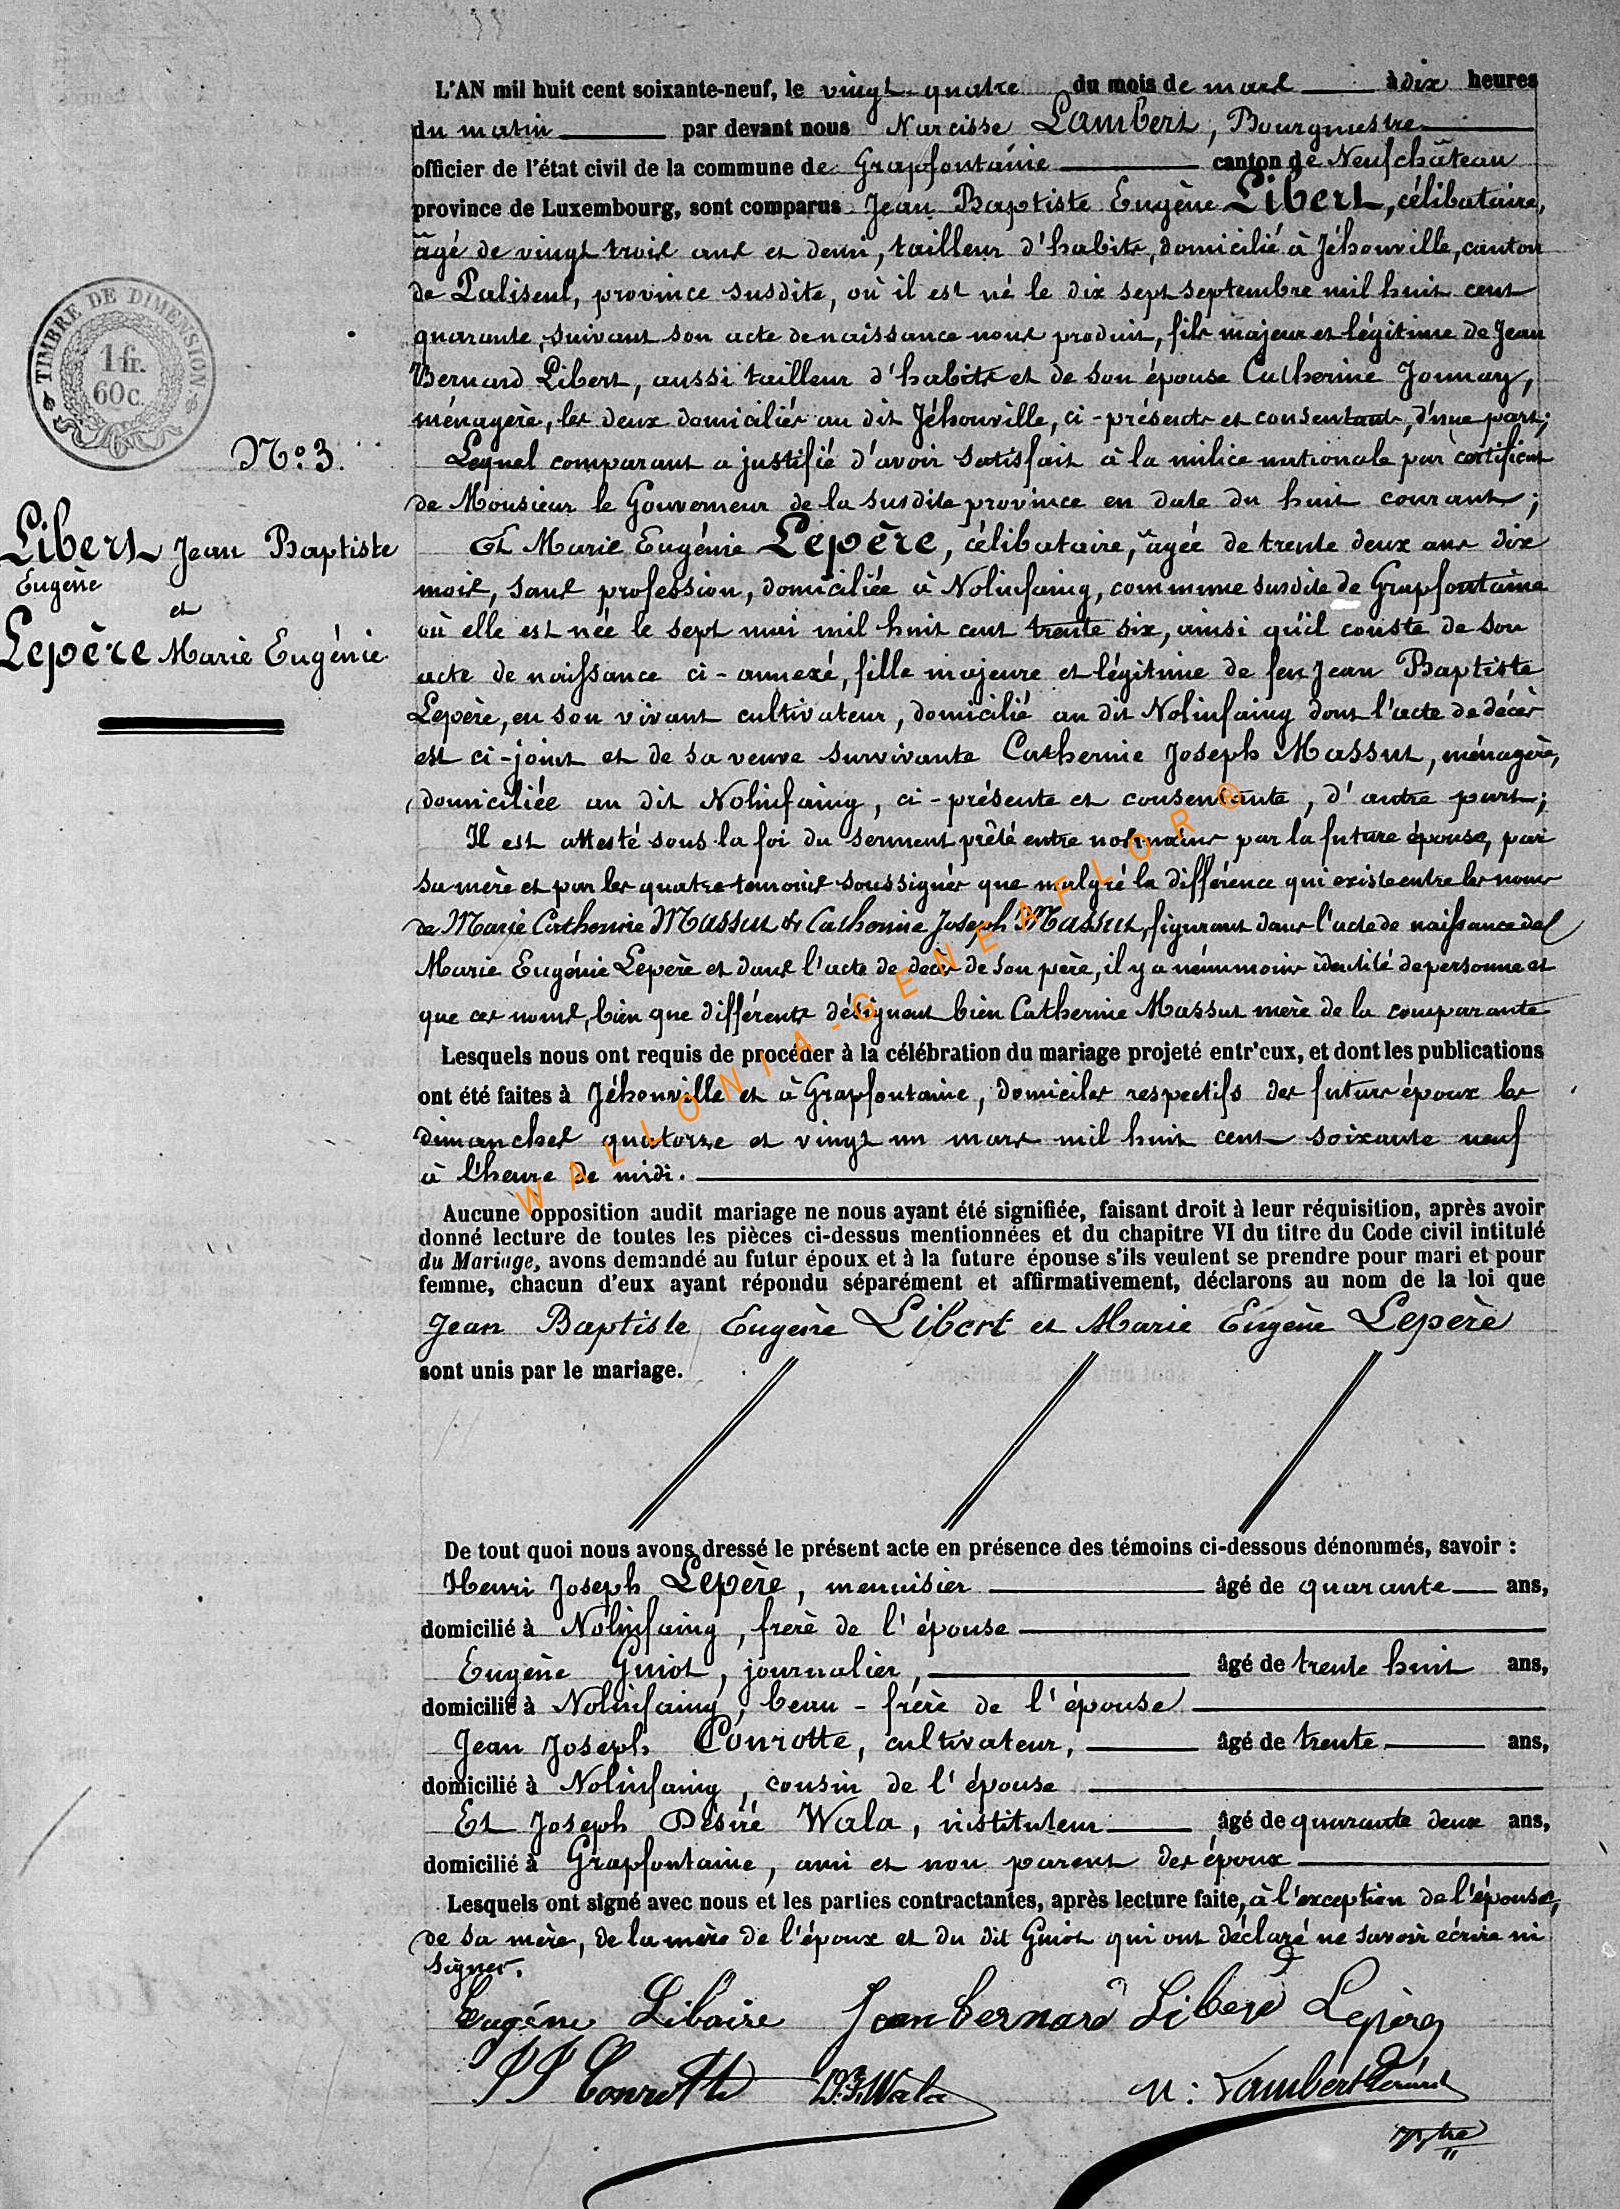 L'AN mil huit cent soixante-neuf, le vingt-quatre du mois de mars à dix heures
du matin par devant nous Narcisse Lambert, Bourgmestre
officier de l'état civil de la commune de Grapfontaine canton de Neufchâteau
province de Luxembourg, sont comparus Jean Baptiste Eugène Libert, célibataire,
âgé de vingt trois ans et demi, tailleur d'habits, domicilié à Jéhonville, canton
de Paliseul, province susdite, où il est né le dix sept septembre mil huit cent
quarante, suivant son acte de naissance nous produit, fils majeur et légitime de Jean
Bernard Libert, aussi tailleur d'habits et de son épouse Catherine Jonnay,
ménagère, les deux domiciliés au dit Jéhonville, ci-présents et consentants, d'une part;
Lequel comparant a justifié d'avoir satisfait à la milice nationale par certificat
de Monsieur le Gouverneur de la susdite province en date du huit courant;
Et Marie Eugénie Lepère, célibataire, âgée de trente deux ans dix
mois, sans profession, domiciliée à Nolinfaing, commune susdite de Grapfontaine
où elle est née le sept mai mil huit cent trente six, ainsi qu'il conste de son
acte de naissance ci-annexé, fille majeure et légitime de feu Jean Baptiste
Lepère, en son vivant cultivateur, domicilié au dit Nolinfaing dont l'acte de décès
est ci-joint et de sa veuve survivante Catherine Joseph Massut, ménagère,
domiciliée au dit Nolinfaing, ci-présente et consentante, d'autre part;
Il est attesté sous la foi du serment prêté entre nos mains par la future épouse, par
sa mère et par les quatre témoins soussignés que malgré la différence qui existe entre les noms
de Marie Catherine Massut & Catherine Joseph Massut, figurant dans l'acte de naissance de
Marie Eugénie Lepère et dans l'acte de décès de son père, il y a néanmoins identité de personne et
que ces noms, bien que différents désignent bien Catherine Massut mère de la comparante
Lesquels nous ont requis de procéder à la célébration du mariage projeté entr'eux, et dont les publications
ont été faites à Jéhonville et à Grapfontaine, domiciles respectifs des futurs époux les
dimanches quatorze et vingt un mars mil huit cent soixante neuf
à l'heure de midi.
Aucune opposition audit mariage ne nous ayant été signifiée, faisant droit à leur réquisition, après avoir
donné lecture de toutes les pièces ci-dessus mentionnées et du chapitre VI du titre du Code civil intitulé
du Mariage, avons demandé au futur époux et à la future épouse s'ils veulent se prendre pour mari et pour
femme, chacun d'eux ayant répondu séparément et affirmativement, déclarons au nom de la loi que
Jean Baptiste Eugène Libert et Marie Eugène Lepère
sont unis par le mariage.
De tout quoi nous avons dressé le présent acte en présence des témoins ci-dessous dénommés, savoir :
Henri Joseph Lepère, menuisier âgé de quarante ans,
domicilié à Nolinfaing, frère de l'épouse
Eugène Guiot, journalier, âgé de trente huit ans,
domicilié à Nolinfaing, beau-frère de l'épouse
Jean Joseph Conrotte, cultivateur, âgé de trente ans,
domicilié à Nolinfaing, cousin de l'épouse
Et Joseph Désiré Wala, instituteur âgé de quarante deux ans,
domicilié à Grapfontaine, ami et non parent des époux
Lesquels ont signé avec nous et les parties contractantes, après lecture faite, à l'exception de l'épouse,
de sa mère, de la mère de l'époux et du dit Guiot qui ont déclaré ne savoir écrire ni
signer.
Eugéne Libaire Jean bernard Libert Lepère
J J Conrotte D.J. Wala N: Lambert
TIMBRE DE DIMENSION
1 fr.
60 c.
No. 3.
Libert Jean Baptiste
Eugène
et
Lepère Marie Eugénie
WALLONIA-GENEAFLOR®